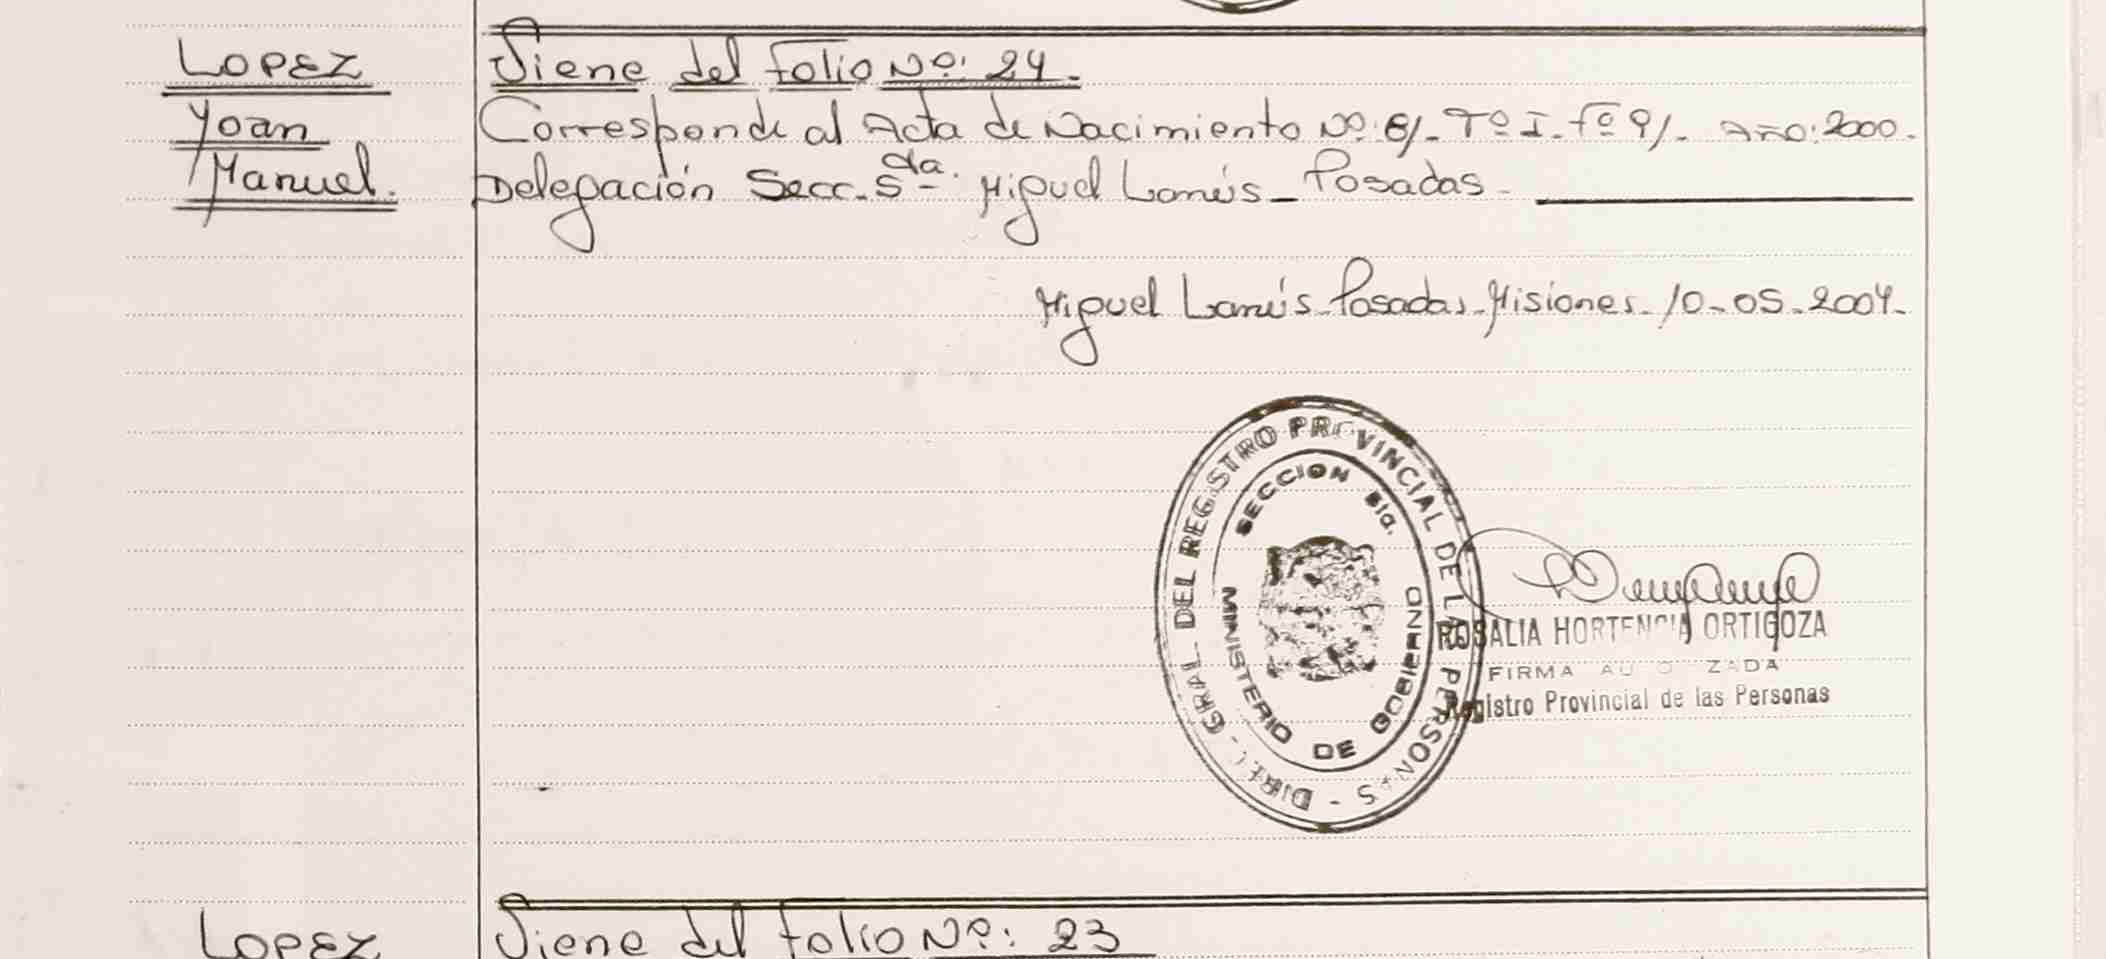 LOPEZ
Yoan
Manuel.
Viene del Folio Nº: 24.
Corresponde al Acta de Nacimiento Nº: 8/- Tº I - fº 9/- Año: 2000.
Delegación Secc. 5ta. Miguel Lanús - Posadas -
Miguel Lanús - Posadas - Misiones - 10-05-2004-
DIREC. GRAL. DEL REGISTRO PROVINCIAL DE LAS PERSONAS -
SECCION 5ta.
MINISTERIO DE GOBIERNO
ROSALIA HORTENCIA ORTIGOZA
FIRMA AUTORIZADA
Registro Provincial de las Personas
LOPEZ
Viene del folio Nº: 23